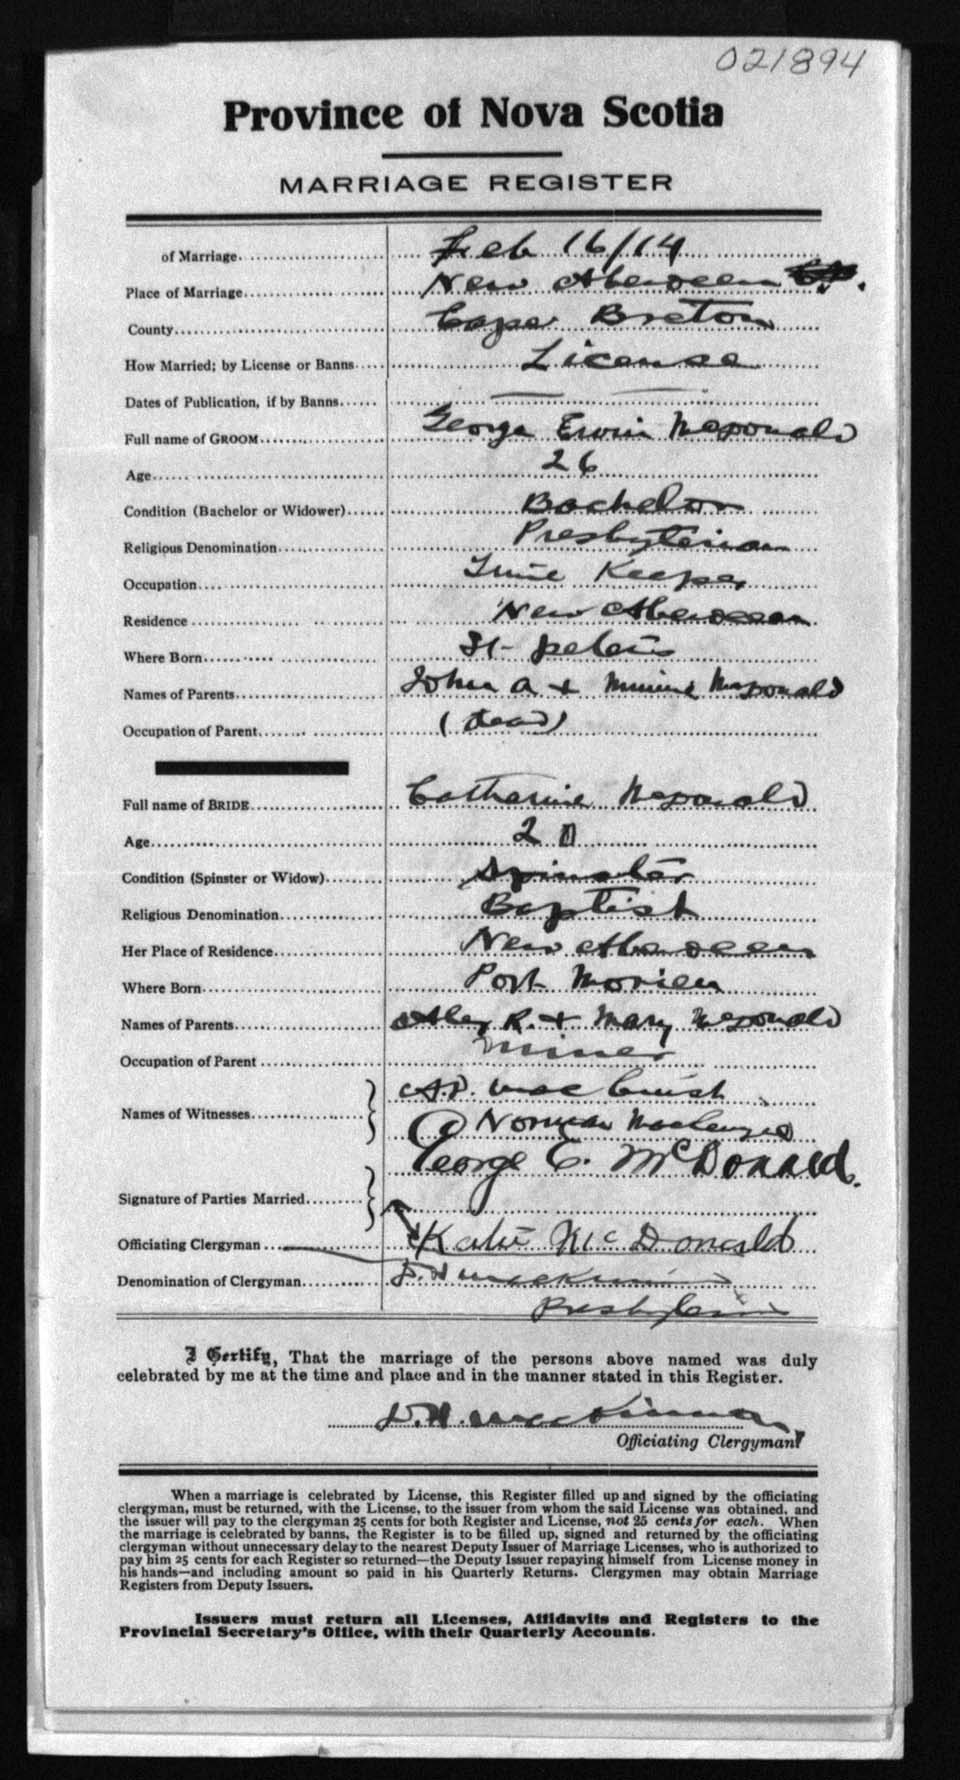 021894
Province of Nova Scotia
MARRIAGE REGISTER
of Marriage Feb 16/14
Place of Marriage New Aberdeen
County Cape Breton
How Married; by License or Banns License
Dates of Publication, if by Banns
Full name of GROOM George Erwin McDonald
Age 26
Condition (Bachelor or Widower) Bachelor
Religious Denomination Presbyterian
Occupation Time Keeper
Residence New Aberdeen
Where Born St. Peters
Names of Parents John A + Minnie McDonald
Occupation of Parent (dead)
Full name of BRIDE Catharine McDonald
Age 20
Condition (Spinster or Widow) Spinster
Religious Denomination Baptist
Her Place of Residence New Aberdeen
Where Born Port Morien
Names of Parents R. + Mary McDonald
Occupation of Parent Miner
A.P. MacCuish
Names of Witnesses Norman MacKenzie
George E. McDonald.
Signature of Parties Married
Officiating Clergyman Katie McDonald
Denomination of Clergyman D. H MacKinnon
Presbyterian
I Certify, That the marriage of the persons above named was duly
celebrated by me at the time and place and in the manner stated in this Register.
D. H. MacKinnon
Officiating Clergyman
When a marriage is celebrated by License, this Register filled up and signed by the officiating
clergyman, must be returned, with the License, to the issuer from whom the said License was obtained, and
the issuer will pay to the clergyman 25 cents for both Register and License, not 25 cents for each. When
the marriage is celebrated by banns, the Register is to be filled up, signed and returned by the officiating
clergyman without unnecessary delay to the nearest Deputy Issuer of Marriage Licenses, who is authorized to
pay him 25 cents for each Register so returned—the Deputy Issuer repaying himself from License money in
his hands—and including amount so paid in his Quarterly Returns. Clergymen may obtain Marriage
Registers from Deputy Issuers.
Issuers must return all Licenses, Affidavits and Registers to the
Provincial Secretary's Office, with their Quarterly Accounts.